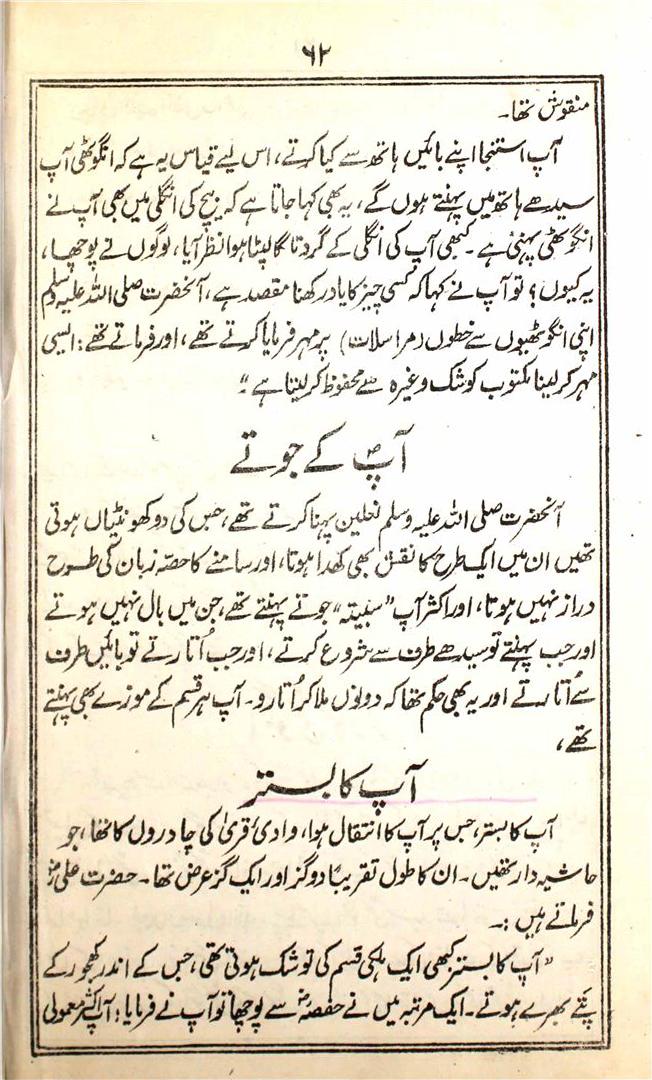 ۶۲
منقوش تھا۔
آپ استنجا اپنے بائیں ہاتھ سے کیا کرتے، اس لیے قیاس یہ ہے کہ انگوٹھی آپ
سیدھے ہاتھ میں پہنتے ہوں گے، یہ بھی کہا جاتا ہے کہ بیچ کی انگلی میں بھی آپ نے
انگوٹھی پہنی ہے۔ کبھی آپ کی انگلی کے گرد تاگا لپٹا ہوا نظر آیا، لوگوں نے پوچھا،
یہ کیوں؟ تو آپ نے کہا کہ کسی چیز کا یاد رکھنا مقصد ہے، آنحضرت صلی اللہ علیہ وسلم
اپنی انگوٹھیوں سے خطوں (مراسلات) پر مہر فرمایا کرتے تھے، اور فرماتے تھے: ایسی
مہر کر لینا مکتوب کو شک وغیرہ سے محفوظ کر لینا ہے"۔
آپؐ کے جوتے
آنحضرت صلی اللہ علیہ وسلم نعلین پہنا کرتے تھے، جس کی دو کھونٹیاں ہوتی
تھیں ان میں ایک طرح کا نقش بھی کھدا ہوتا، اور سامنے کا حصّہ زبان کی طرح
دراز نہیں ہوتا، اور اکثر آپ "سبتیہ" جوتے پہنتے تھے، جن میں بال نہیں ہوتے
اور جب پہنتے تو سیدھے طرف سے شروع کرتے، اور جب اُتارتے تو بائیں طرف
سے اُتارتے اور یہ بھی حکم تھا کہ دونوں ملا کر اُتارو۔ آپ ہر قسم کے موزے بھی پہنتے
تھے،
آپ کا بستر
آپ کا بستر، جس پر آپ کا انتقال ہوا، وادئ قریٰ کی چادروں کا تھا، جو
حاشیہ دار تھیں۔ ان کا طول تقریبًا دو گز اور ایک گز عرض تھا۔ حضرت علیؓ
فرماتے ہیں :۔
"آپ کا بستر کبھی ایک ہلکی قسم کی توشک ہوتی تھی، جس کے اندر کھجور کے
پتے بھرے ہوتے۔ ایک مرتبہ میں نے حفصہؓ سے پوچھا تو آپ نے فرمایا: آپ اکثر معمولی